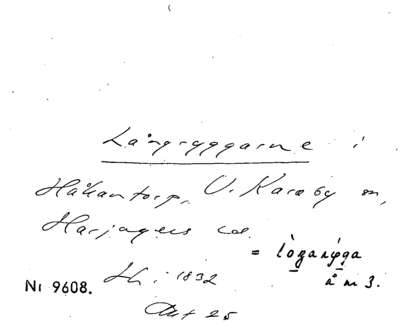 Långryggarne i
Håkantorp, V. Karaby sn,
Harjagers hd.
= lòŋarýga
å m 3.
Nr 9608. Sk. i 1832
Akt 25